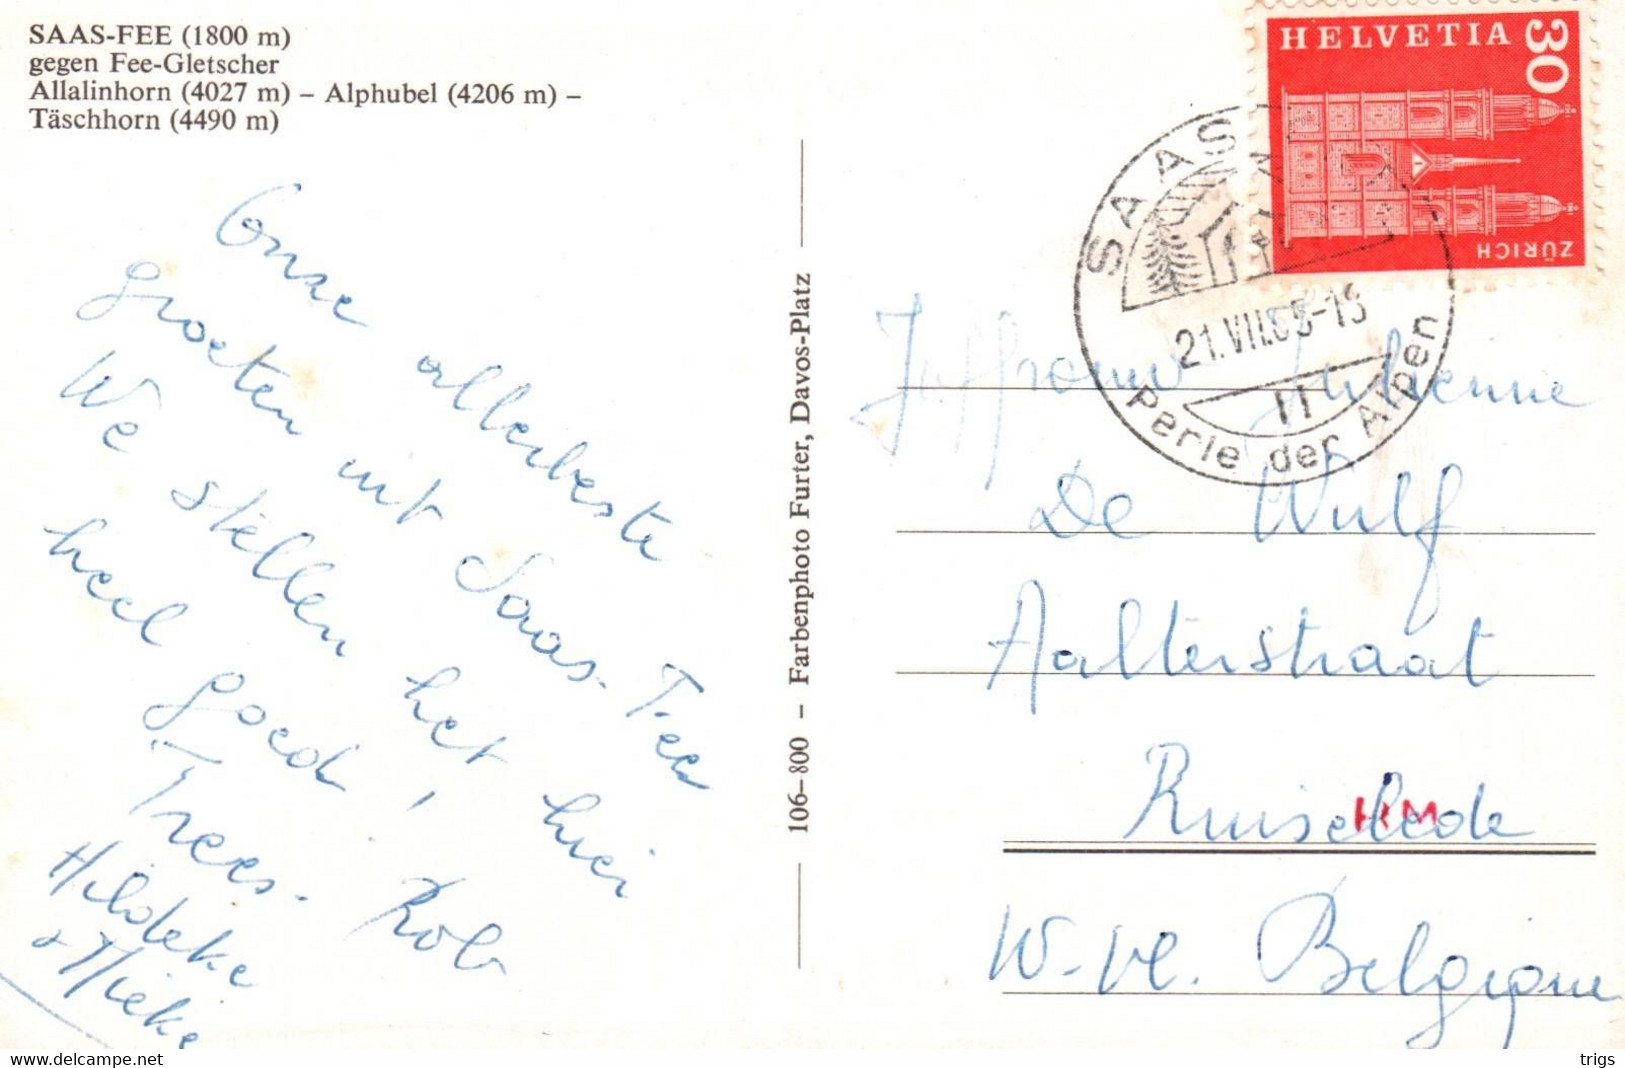 SAAS-FEE (1800 m)
gegen Fee-Gletscher
Allalinhorn (4027 m) – Alphubel (4206 m) –
Täschhorn (4490 m)
Onze allerbeste
groeten uit Saas-Fee
We stellen het hier
heel goed,
G. Trees. Rob
Hildeke
& Mieke
106–800 – Farbenphoto Furter, Davos-Platz
HELVETIA 30
ZÜRICH
SAAS
21.VII.
Perle der Alpen
Juffrouw Julienne
De Wulf
Aalterstraat
Ruiselede
HM
W-Vl. Belgique
delcampe.net
trigs